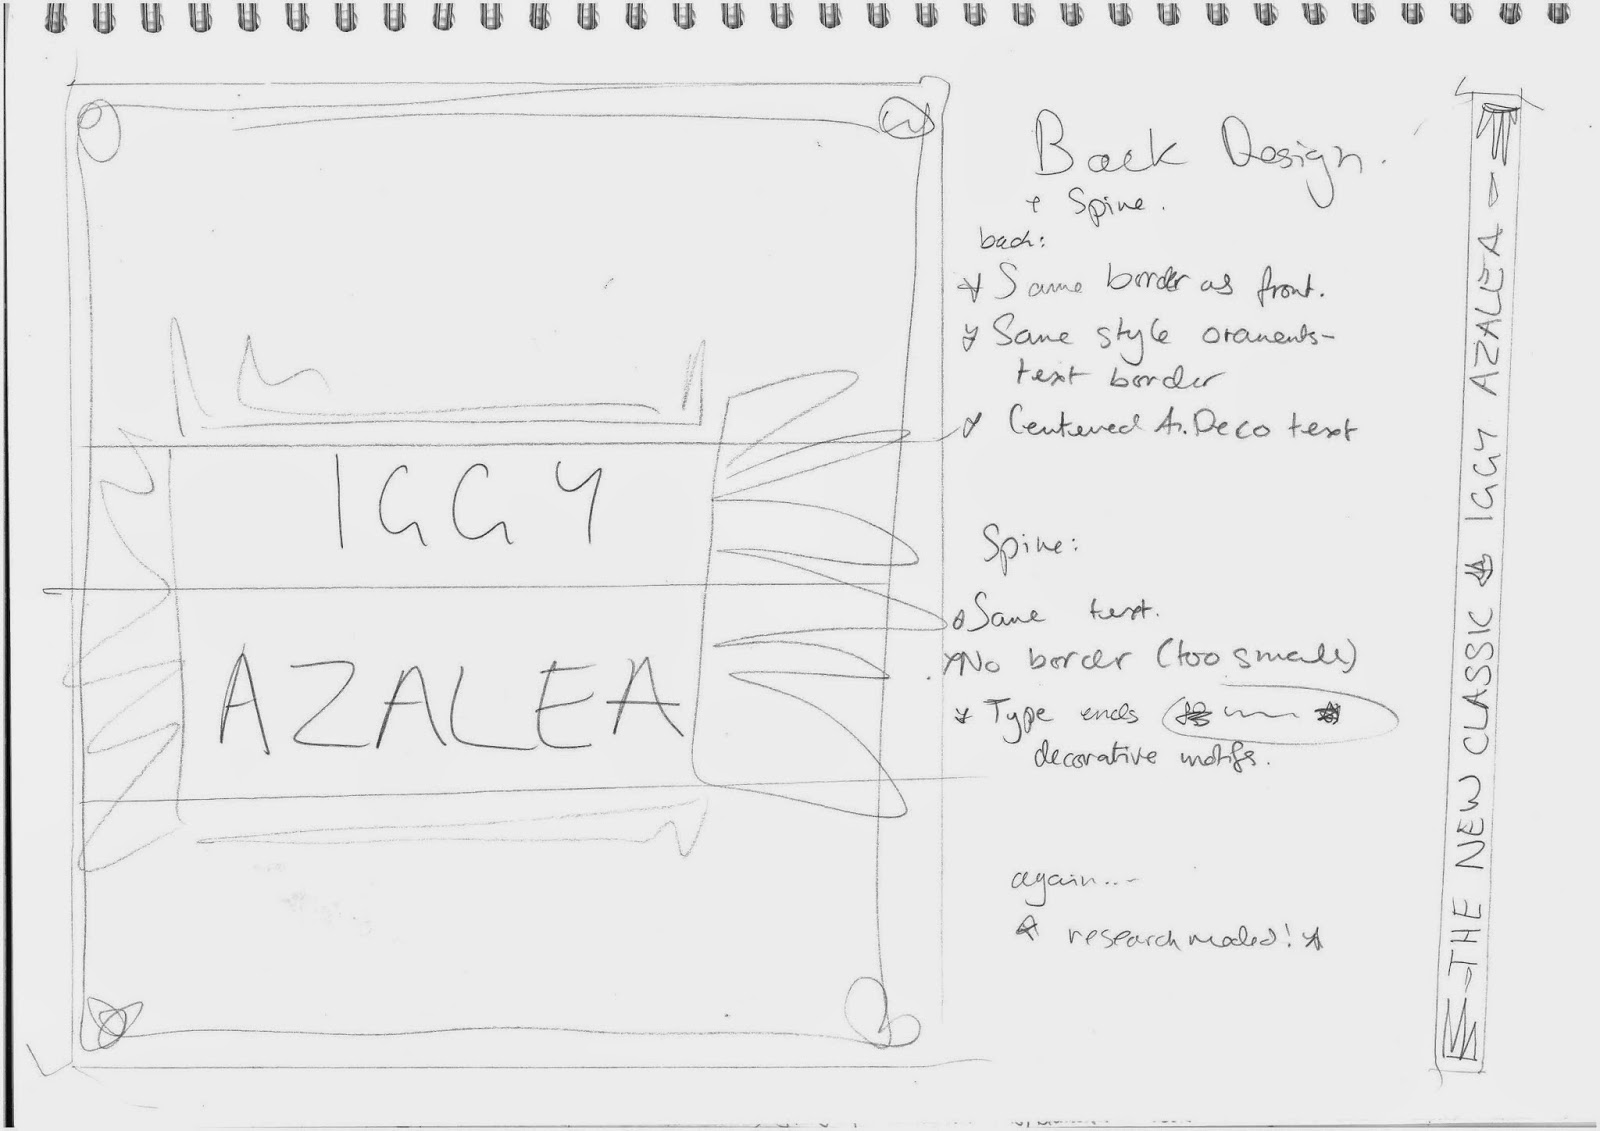 IGGY
AZALEA
Back Design.
+ Spine.
back:
Same border as front.
Same style oraments-
text border
Centered A.Deco text
Spine:
Same text.
No border (too small)
Type ends
decorative motifs.
again...-
research needed!
-THE NEW CLASSIC IGGY AZALEA-